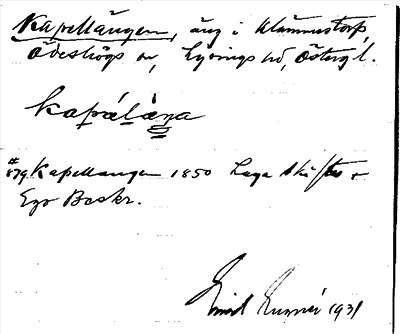 Kapellängen, äng i Stämmestorp,
Ödeshögs sn, Lysings hd, Östergl.
kapälä̱ŋa
#879 Kapellangen 1850 Laga skiftes
Ego Beskr.
Emil 1931